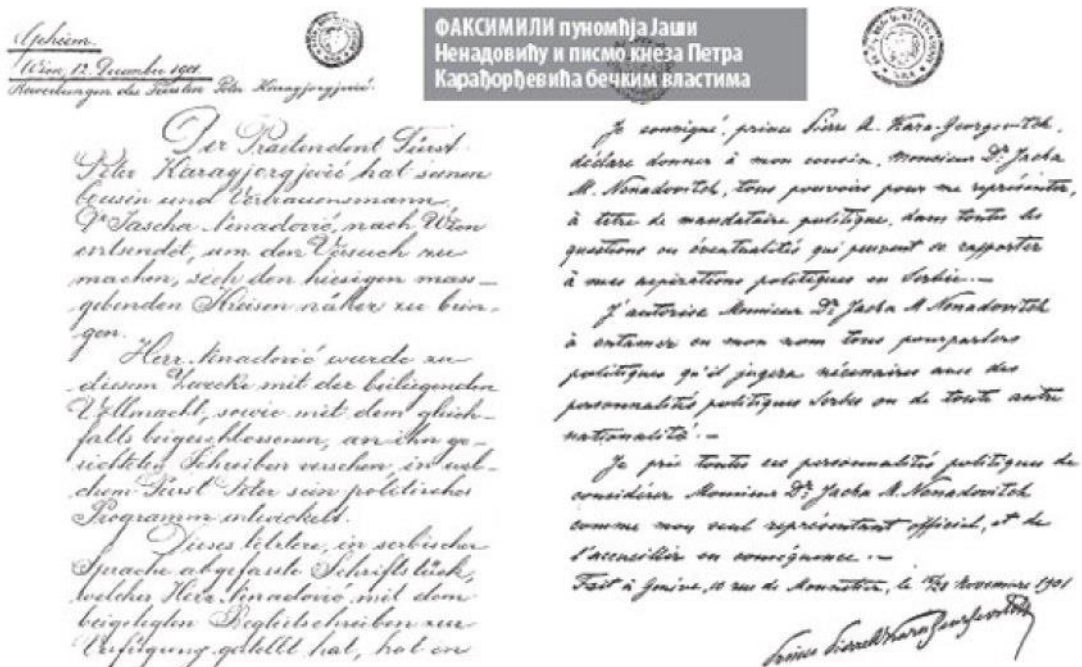 Geheim.
Wien, 12. December 1901.
Bewerbungen des Fürsten Peter Karagjorgjević.
ФАКСИМИЛИ пуномћја Јаши
Ненадовићу и писмо кнеза Петра
Карађорђевића бечким властима
Der Praetendent Fürst
Peter Karagjorgjević hat seinen
Cousin und Vertrauensmann,
Dr Jascha Nenadović, nach Wien
entsendet, um den Versuch zu
machen, sich den hiesigen mass-
gebenden Kreisen näher zu brin-
gen.
Herr Nenadović wurde zu
diesem Zwecke mit der beiliegenden
Vollmacht, sowie mit dem gleich-
falls beigeschlossenen, an ihn ge-
richteten Schreiben versehen, in wel-
chem Fürst Peter sein politisches
Programm entwickelt.
Dieses letztere, in serbischer
Sprache abgefasste Schriftstück,
welches Herr Nenadović mit dem
beigelegten Begleitschreiben zur
Verfügung gestellt hat, hat in
Je soussigné, prince Pierre A. Kara-Georgevitch,
déclare donner à mon cousin, Monsieur Dr. Jacha
M. Nenadovitch, tous pouvoirs pour me représenter,
à titre de mandataire politique, dans toutes les
questions ou éventualités qui peuvent se rapporter
à mes aspirations politiques en Serbie. —
J'autorise Monsieur Dr. Jacha M. Nenadovitch
à entamer en mon nom tous pourparlers
politiques qu'il jugera nécessaires avec des
personnalités politiques Serbes ou de toute autre
nationalité. —
Je prie toutes ces personnalités politiques de
considérer Monsieur Dr. Jacha M. Nenadovitch
comme mon seul représentant officiel, et de
l'accueillir en conséquence. —
Fait à Genève, 10 rue de Monnetier, le Novembre 1901
Prince Pierre Kara Georgevitch